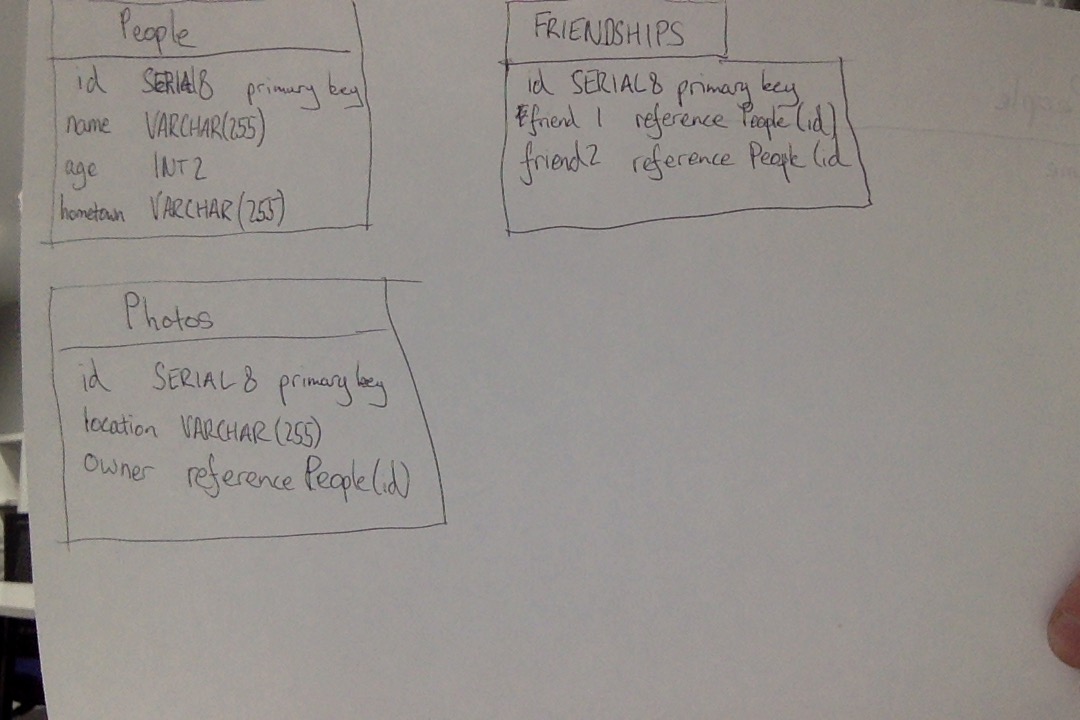 People
id SERIAL8 primary key
name VARCHAR(255)
age INT2
hometown VARCHAR(255)
FRIENDSHIPS
id SERIAL8 primary key
friend 1 reference People(id)
friend2 reference People (id
Photos
id SERIAL8 primary key
location VARCHAR(255)
owner reference People(id)